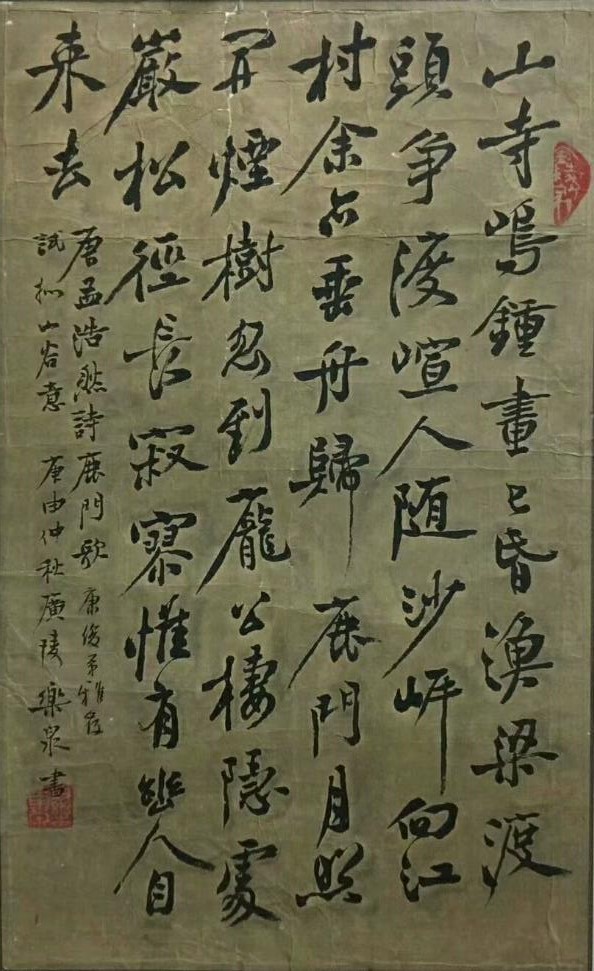 山寺鳴鍾晝已昏漁梁渡
頭爭渡喧人随沙岸向江
村余亦乘舟歸鹿門月照
開煙樹忽到龐公棲隱處
巖松徑長寂寥惟有幽人自
来去
唐孟浩然詩鹿門歌 康俊弟雅
試拟山谷意 庚申仲秋廣陵樂泉書